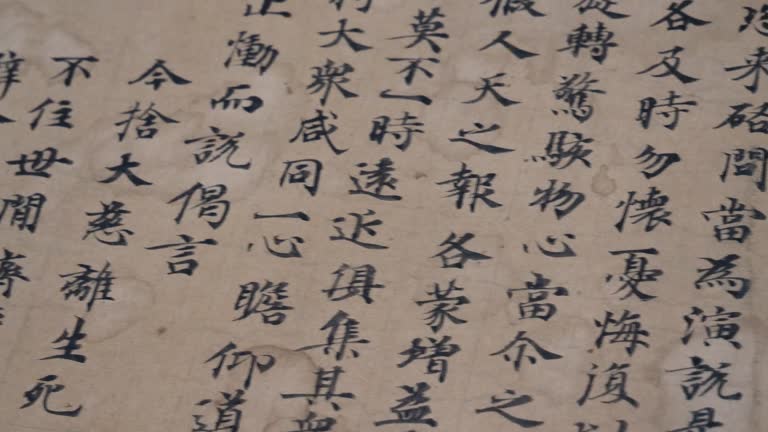 来硌問當為演說是
各及時勿懷憂悔復以
旋轉驚駭物心當尒之
人天之報各蒙增益
莫不一時遠近俱集其眾
大衆咸同一心瞻仰道
止慟而說偈言
今捨大慈離生死
不住世間